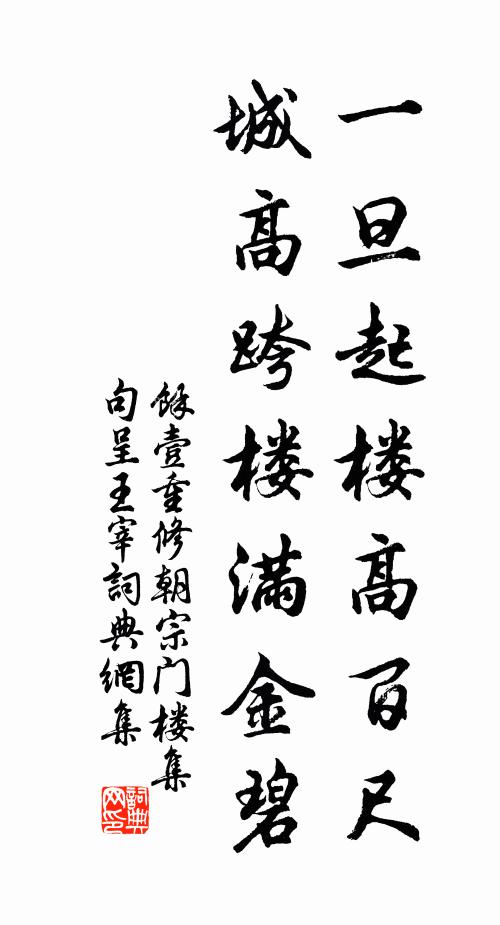 一旦起楼高百尺
城高跨楼满金碧
餘壹重修朝宗门楼集
句呈王宰詞典網集
詞典网印